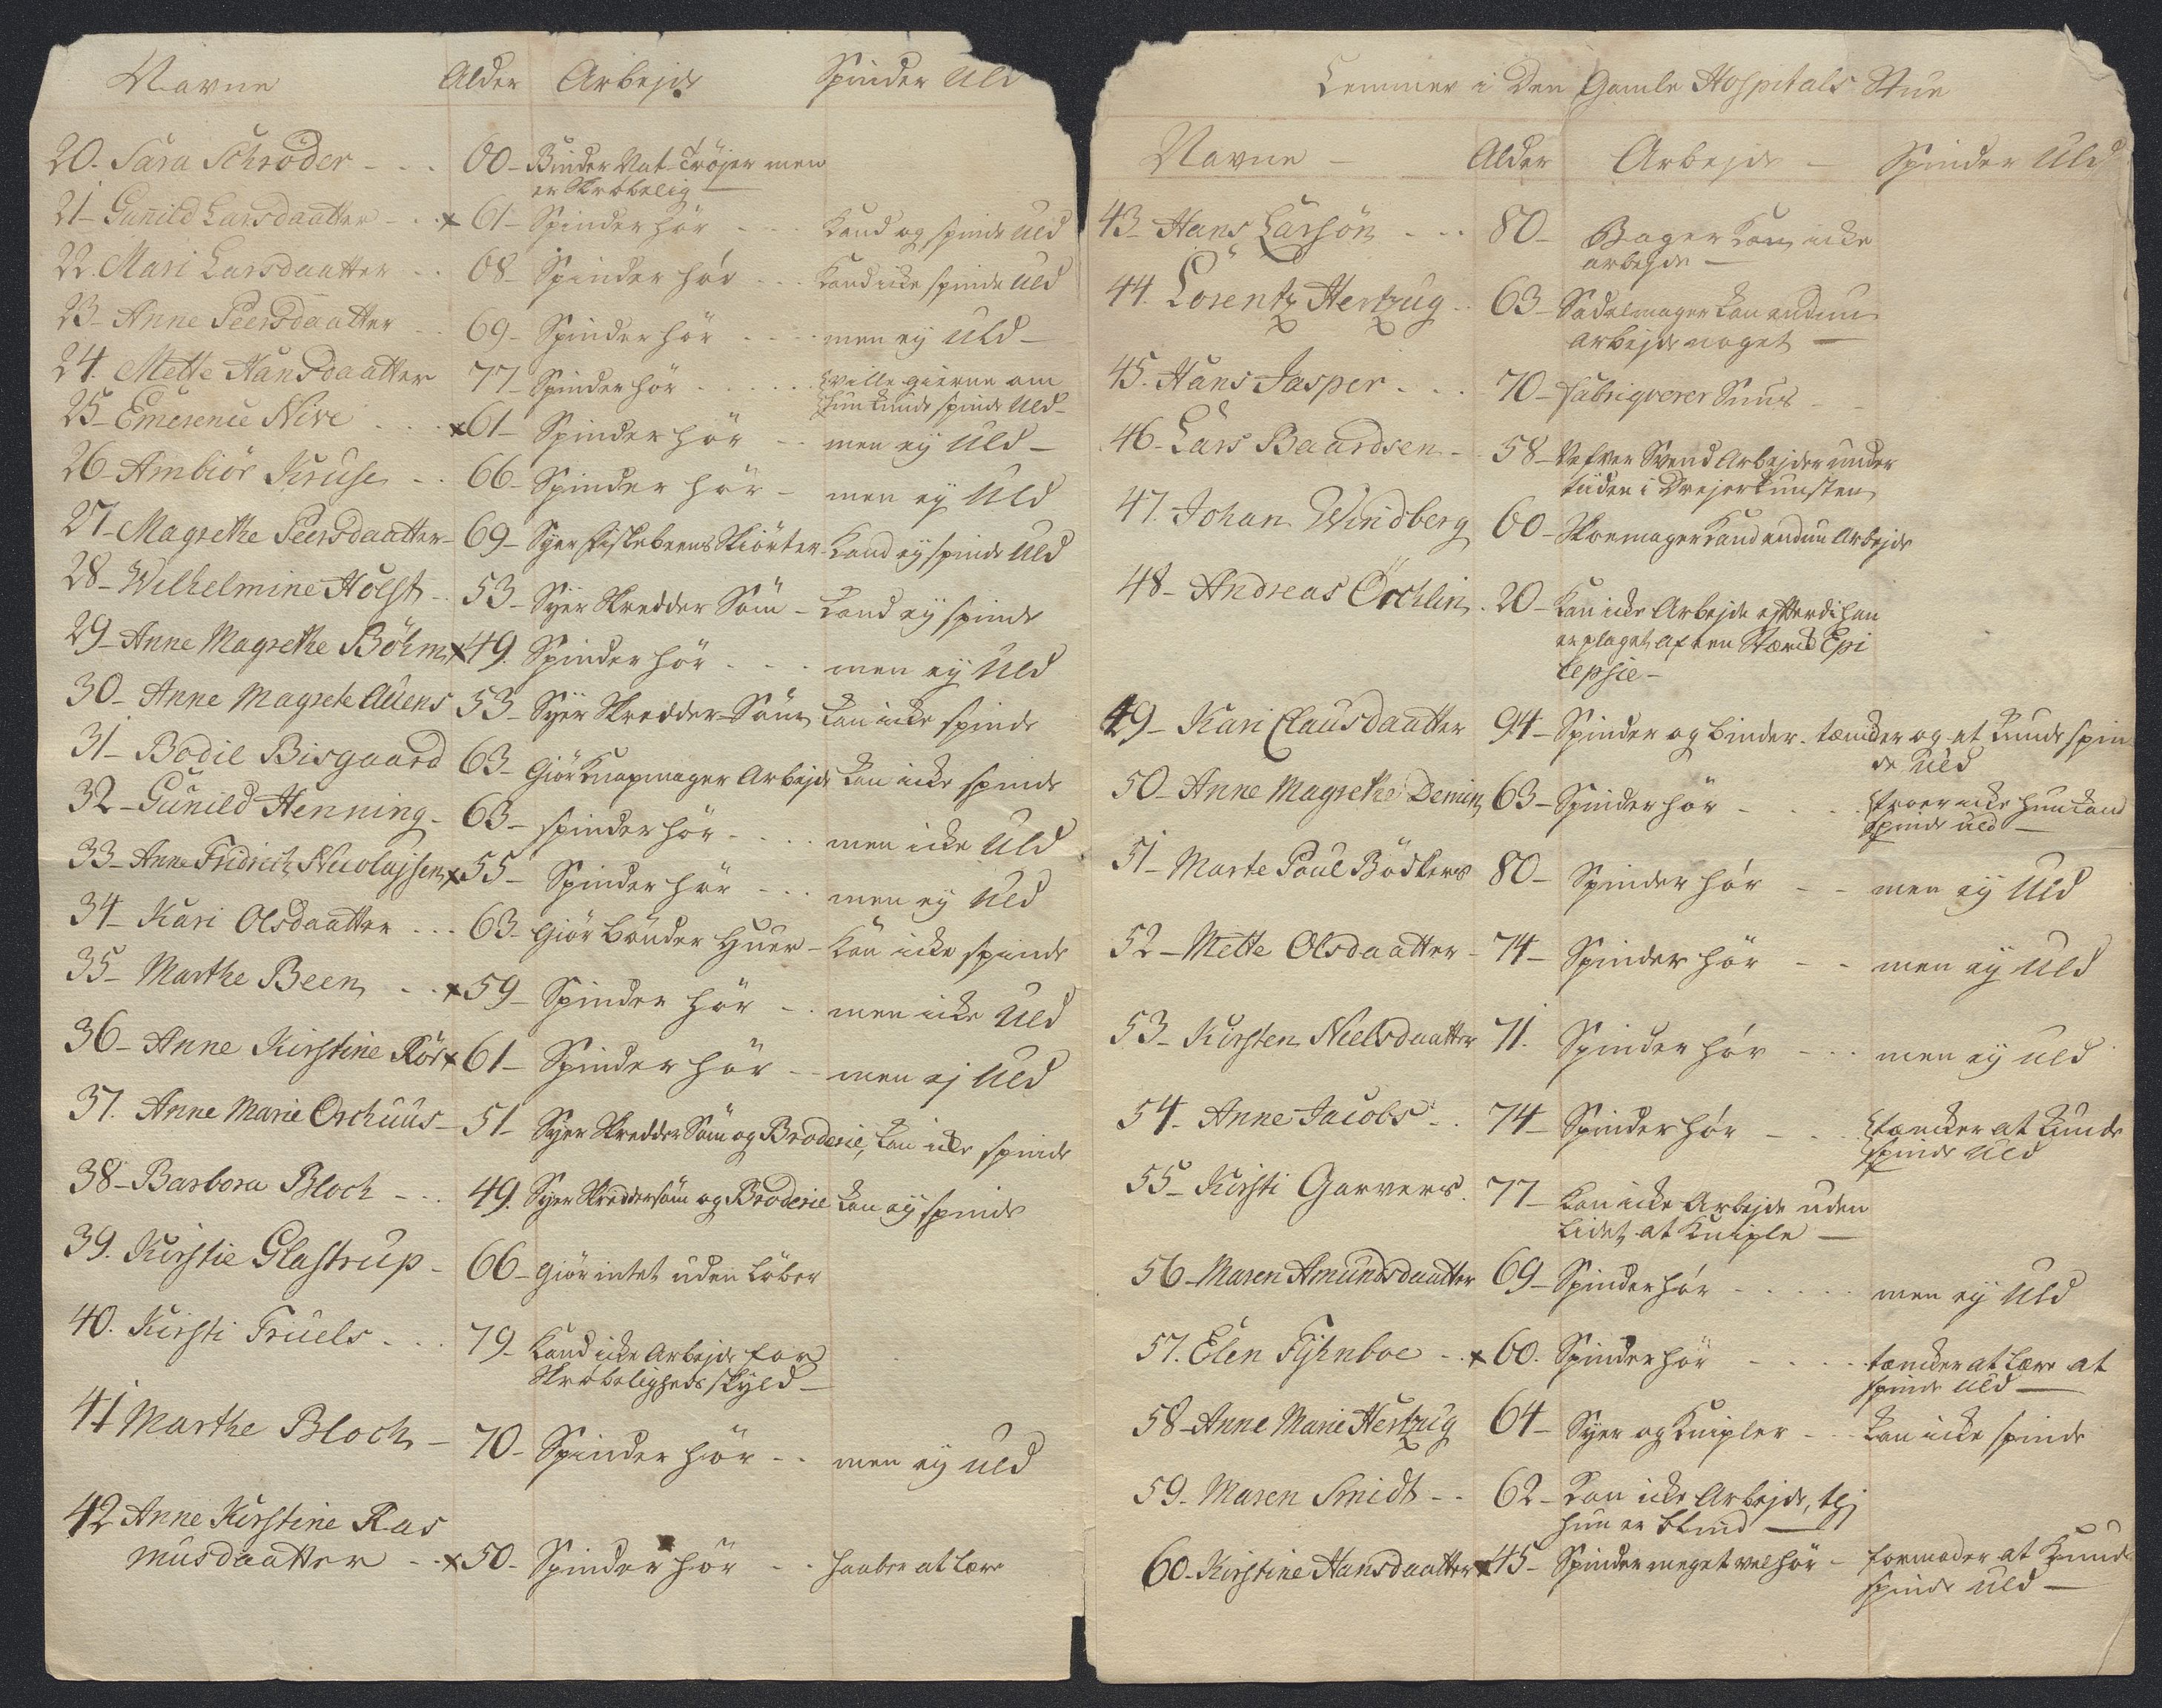 Navne Alder Arbejde Spinder Uld
20. Sara Schröder - - . 60 - Binder Nat-Trøjer men
er Skrøbelig —
21 - Gunild Larsdaatter - . x 61 - Spinder hør - - - Kand og spinde Uld
22. Mari Larsdaatter - . 68 - Spinder hør - - . Kand icke spinde Uld
23 - Anne Peersdaatter - . 69 - Spinder hør - - - - men eÿ Uld -
24. Mette Hansdaatter 77 - Spinder hør . . . . . . Wille gierne om
hun kunde spinde Uld -
25 - Emerence Nive . . . x 61 - Spinder hør - - men eÿ Uld -
26 - Ambiör Kruse - . 66 - Spinder hør - men eÿ Uld
27 - Magrethe Peersdaatter - 69 - Syer Fiskebeens Skiörter - Kand eÿ spinde Uld
28 - Wilhelmine Holst - . 53 - Sÿer Skredder Söm - Kand eÿ spinde
29 - Anne Magrethe Böhm x 49. Spinder hør - - . men eÿ Uld
30 - Anne Magrete Auens 53 - Sÿer Skredder-Söm Kan icke spinde
31 - Bodil Bisgaard 63 - Giör Knapmager Arbejde Kan icke spinde
32 - Gunild Henning - 63 - spinder hør - . . . men icke Uld
33 - Anne Fridrich Nicolajsen x 55 - Spinder hør - - . men eÿ Uld
34 - Kari Olsdaatter . . . 63 - Giör bönder Huer - Kan icke spinde
35 - Marthe Been - . x 59 - Spinder hør - . men icke Uld
36 - Anne Kirstine Rör x 61 - Spinder hør - - men ej Uld
37. Anne Marie Orchuus - 51 - Syer Skredder Söm og Broderie, Kan icke spinde
38 - Barbora Bloch - . . 49. Syer Skreddersöm og Broderie Kan eÿ spinde
39. Kirstie Glastrup - 66 - Giör intet uden Löber
40. Kirsti Truels - . . 79 - Kand icke Arbejde for
Skröbeligheds skÿld —
41 Marthe Bloch - 70 - Spinder hør - - men eÿ uld
42 Anne Kirstine Ras
musdaatter - . x 50 - Spinder hør - . haaber at lære
Lemmer i Den Gamle Hospitals Stue
Navne - Alder Arbejde - Spinder Uld
43 - Hans Larsön - - . 80 - Bager Kan icke
arbejde —
44. Lorentz Hertzug . . 63 - Sadelmager kan endnu
Arbejde noget —
45. Hans Jasper - . . 70 - Fabriqverer Snuus - -
46 - Lars Baardsen - . 58 - Væfver Svend Arbejder under
tiiden i Drejerkunsten
47. Johan Windberg 60 - Skoemager Kand endnu Arbejde
48 - Andreas Örchlin . 20 - Kan icke Arbejde efterdi han
er plaget af een Stærck Epi
lepsie -
49 - Kari Clausdaatter 94 - Spinder og binder - tæncker og at kunde spin
de Uld
50 - Anne Magrethe Demin 63 - Spinder hør - . . . troer icke hun kand
spinde uld —
51 - Marte Poul Bödkers 80 - Spinder hør - - men eÿ Uld
52 - Mette Olsdaatter - 74 - Spinder hør - - men eÿ Uld
53 - Kirsten Nielsdaatter 71. Spinder hør - - . men eÿ uld
54 - Anne Jacobs - . 74 - Spinder hør - . . tæncker at kunde
spinde Uld
55 - Kirsti Garvers. 77 - Kan icke Arbejde uden
Lidet at Kniple —
56 - Maren Amundsdaatter 69 - Spinder hør - . . . . men eÿ Uld
57. Elen Fÿhnboe - . x 60. Spinder hør - . . . tæncker at lære at
spinde Uld —
58 - Anne Marie Hertzug 64 - Syer og Knipler - . . Kan icke spinde
59 - Maren Smidt - . 62 - Kan icke Arbejde, thj
hun er blind —
60 - Kirstine Hansdaatter x 45 - Spinder meget vel hør - formoder at Kunde
spinde uld —